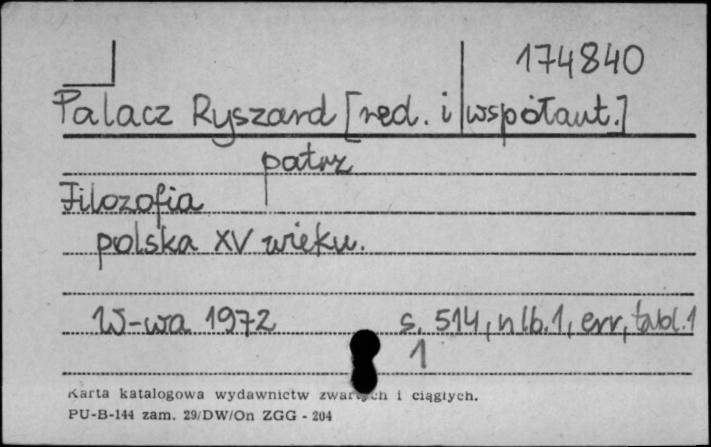 174840
Palacz Ryszard [red. i współaut.]
patrz
Filozofia
polska XV wieku.
W-wa 1972 s. 514, nlb.1, err, tabl.1
1
Karta katalogowa wydawnictw zwartych i ciągłych.
PU-B-144 zam. 29/DW/On ZGG - 204